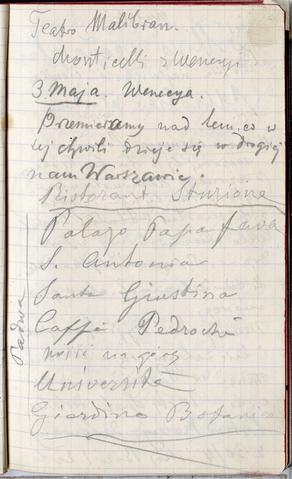 Teatro Malibran.
Monticelli z Wenecyi
3 Maja. Wenecya.
Przemierzamy nad tem, co w
tej chwili dzieje się w drogiej
nam Warszawie.
Ristorant Sturione
Palazo Papafava
S. Antonia
Santa Giustina
Caffé Pedrochi
na górę
Université
Giardino Botanico
Padwa